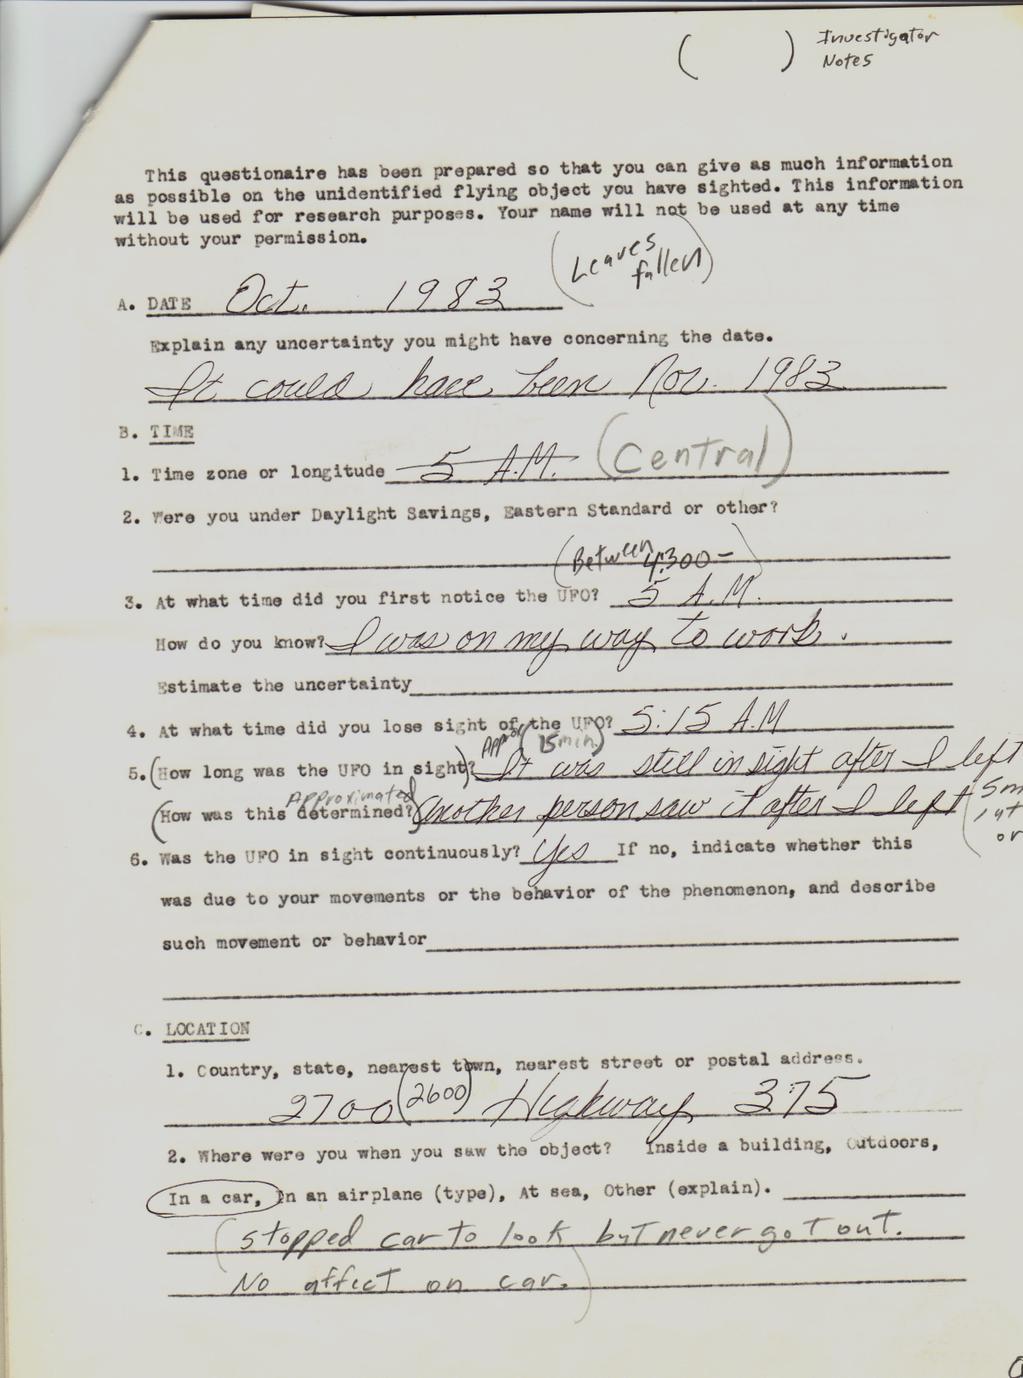 ( ) Investigator
Notes
This questionaire has been prepared so that you can give as much information
as possible on the unidentified flying object you have sighted. This information
will be used for research purposes. Your name will not be used at any time
without your permission.
(Leaves
fallen)
A. DATE Oct. 1983
Explain any uncertainty you might have concerning the date.
It could have been Nov. 1983
B. TIME
1. Time zone or longitude 5 A.M. (Central)
2. Were you under Daylight Savings, Eastern Standard or other?
(Between 4:300-)
3. At what time did you first notice the UFO? 5 A.M.
How do you know? I was on my way to work.
Estimate the uncertainty
4. At what time did you lose sight of the UFO? 5:15 A.M
Appr (15 min.)
5. (How long was the UFO in sight)? It was still in sight after I left
Approximated
(How was this determined?) Another person saw it after I left (5 m
or
6. Was the UFO in sight continuously? Yes If no, indicate whether this
was due to your movements or the behavior of the phenomenon, and describe
such movement or behavior
C. LOCATION
1. Country, state, nearest town, nearest street or postal address.
2700 (2600) Highway 375
2. Where were you when you saw the object? Inside a building, Outdoors,
In a car, In an airplane (type), At sea, Other (explain).
(stopped car to look but never got out.
No affect on car.)